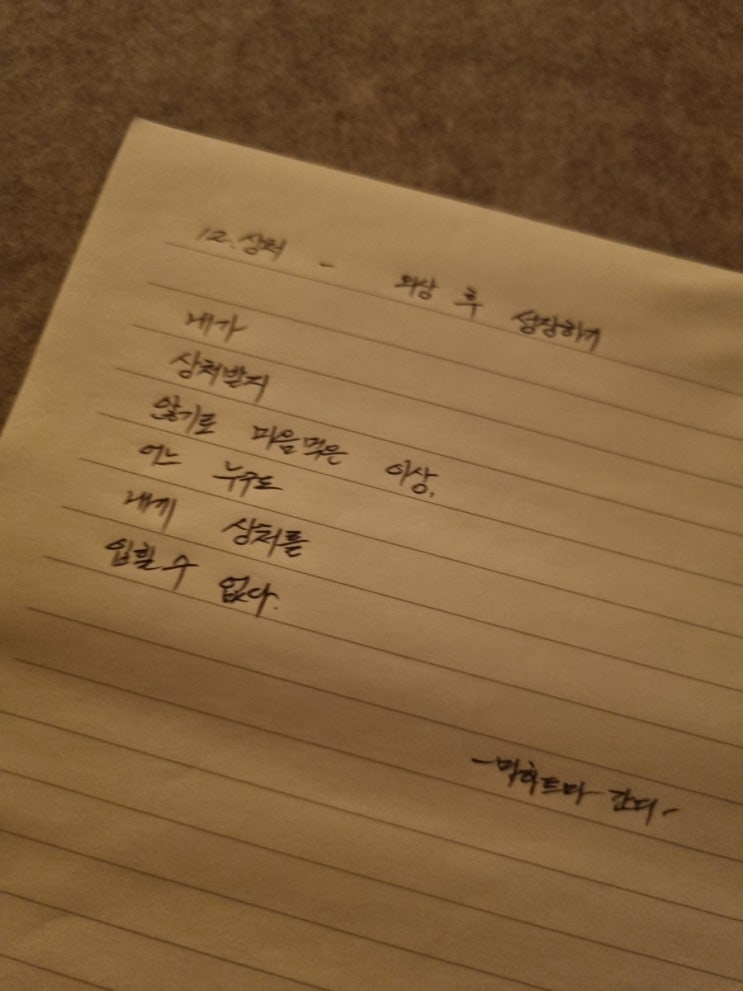 12. 상처 - 외상 후 성장하기
내가
상처받지
않기로 마음먹은 이상,
어느 누구도
내게 상처를
입힐 수 없다.
-마하트마 간디-